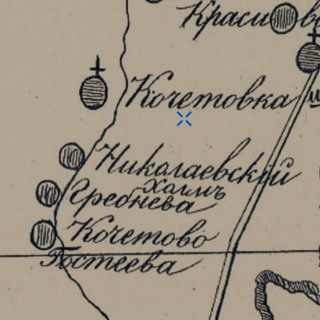 Красивс
Кочетовка
Николаевскій
Холмъ
Гребнева
Кочетово
Ростеева